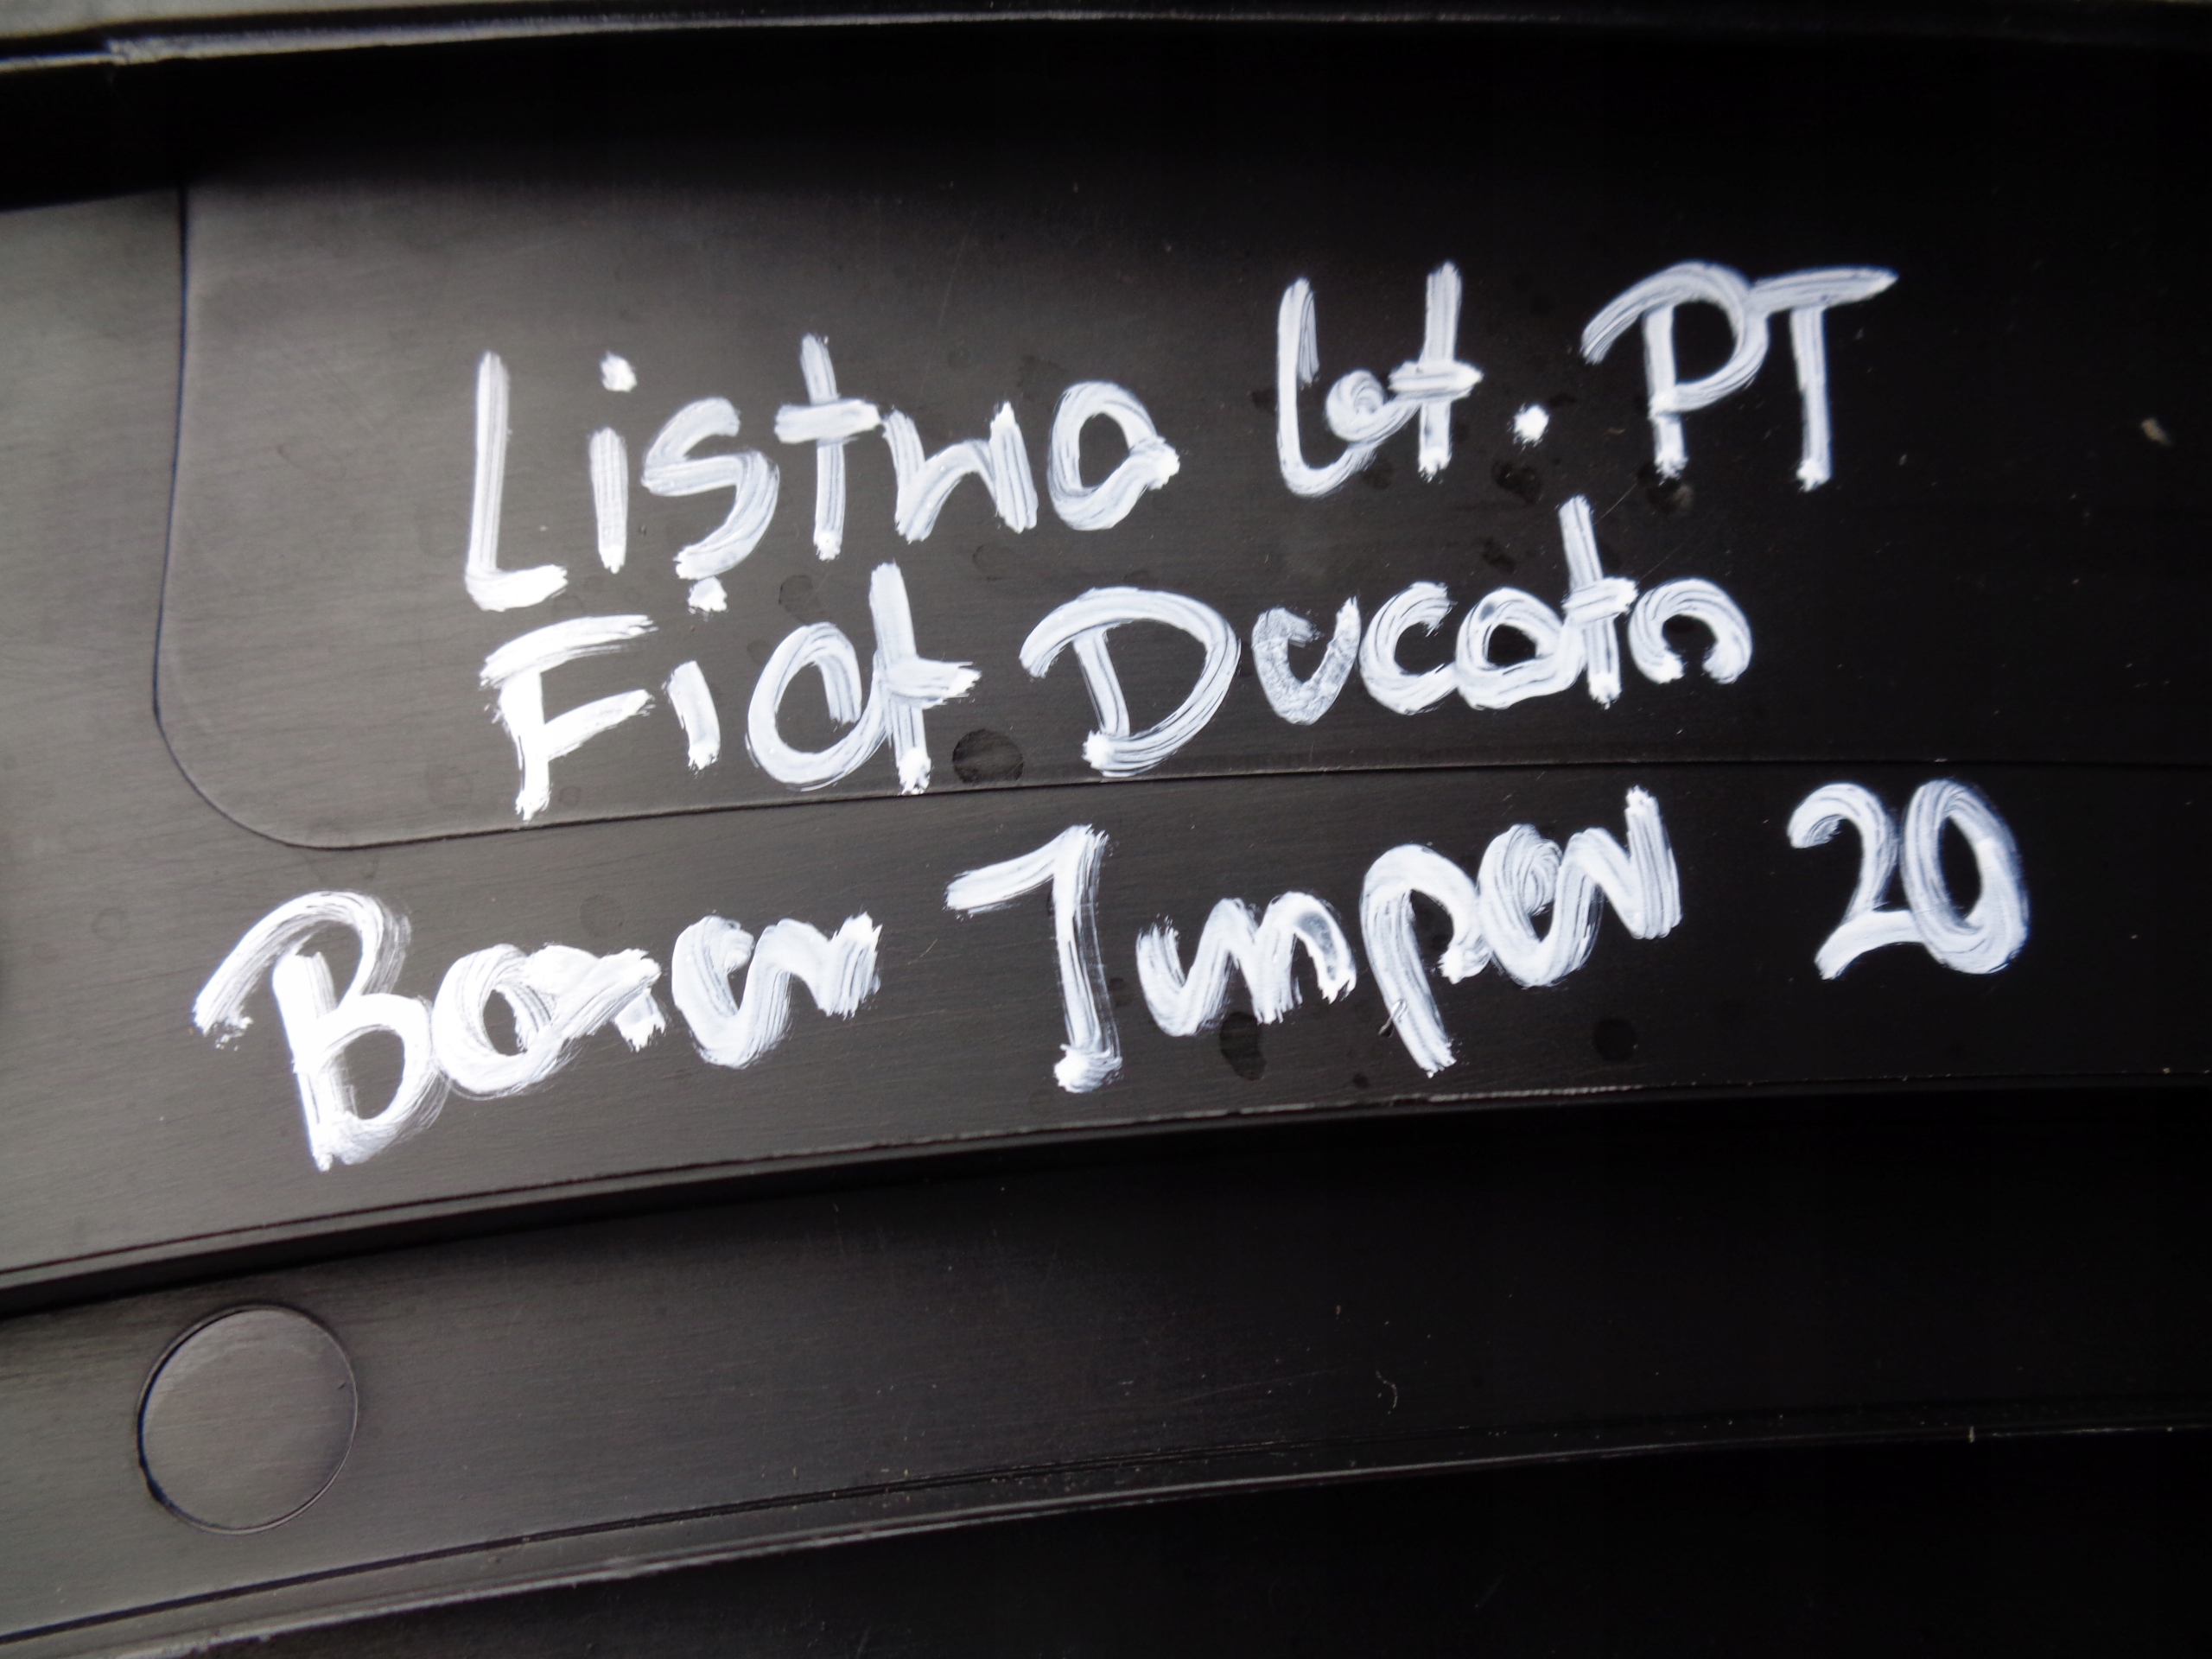 Listwa lot. PT
Fiat Ducato
Boxer Jumper 20